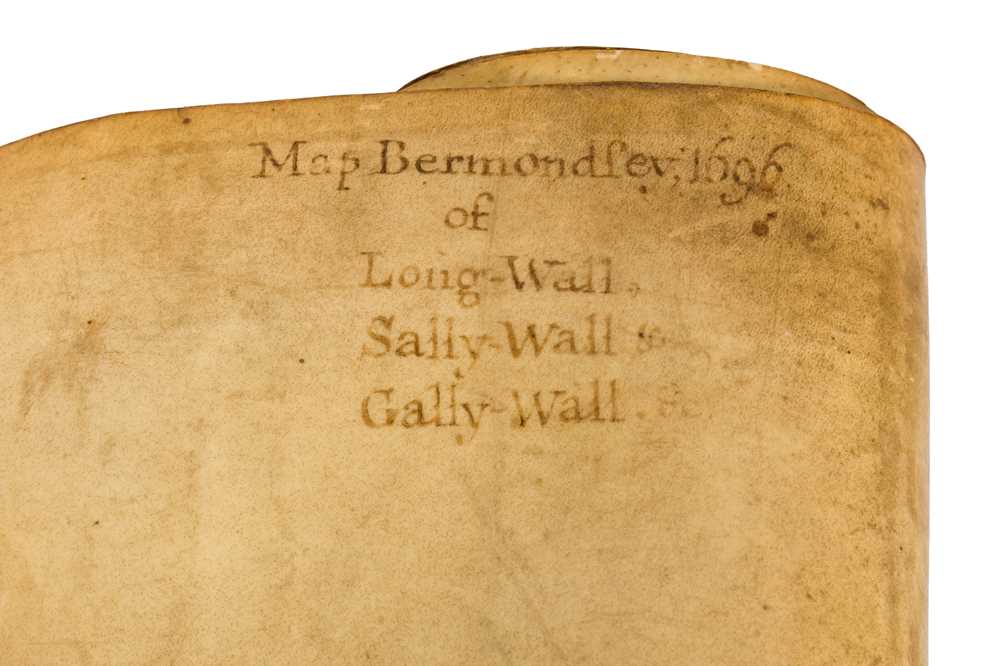 Map Bermondſey, 1696.
of
Long-Wall,
Sally-Wall &
Gally-Wall. &c.